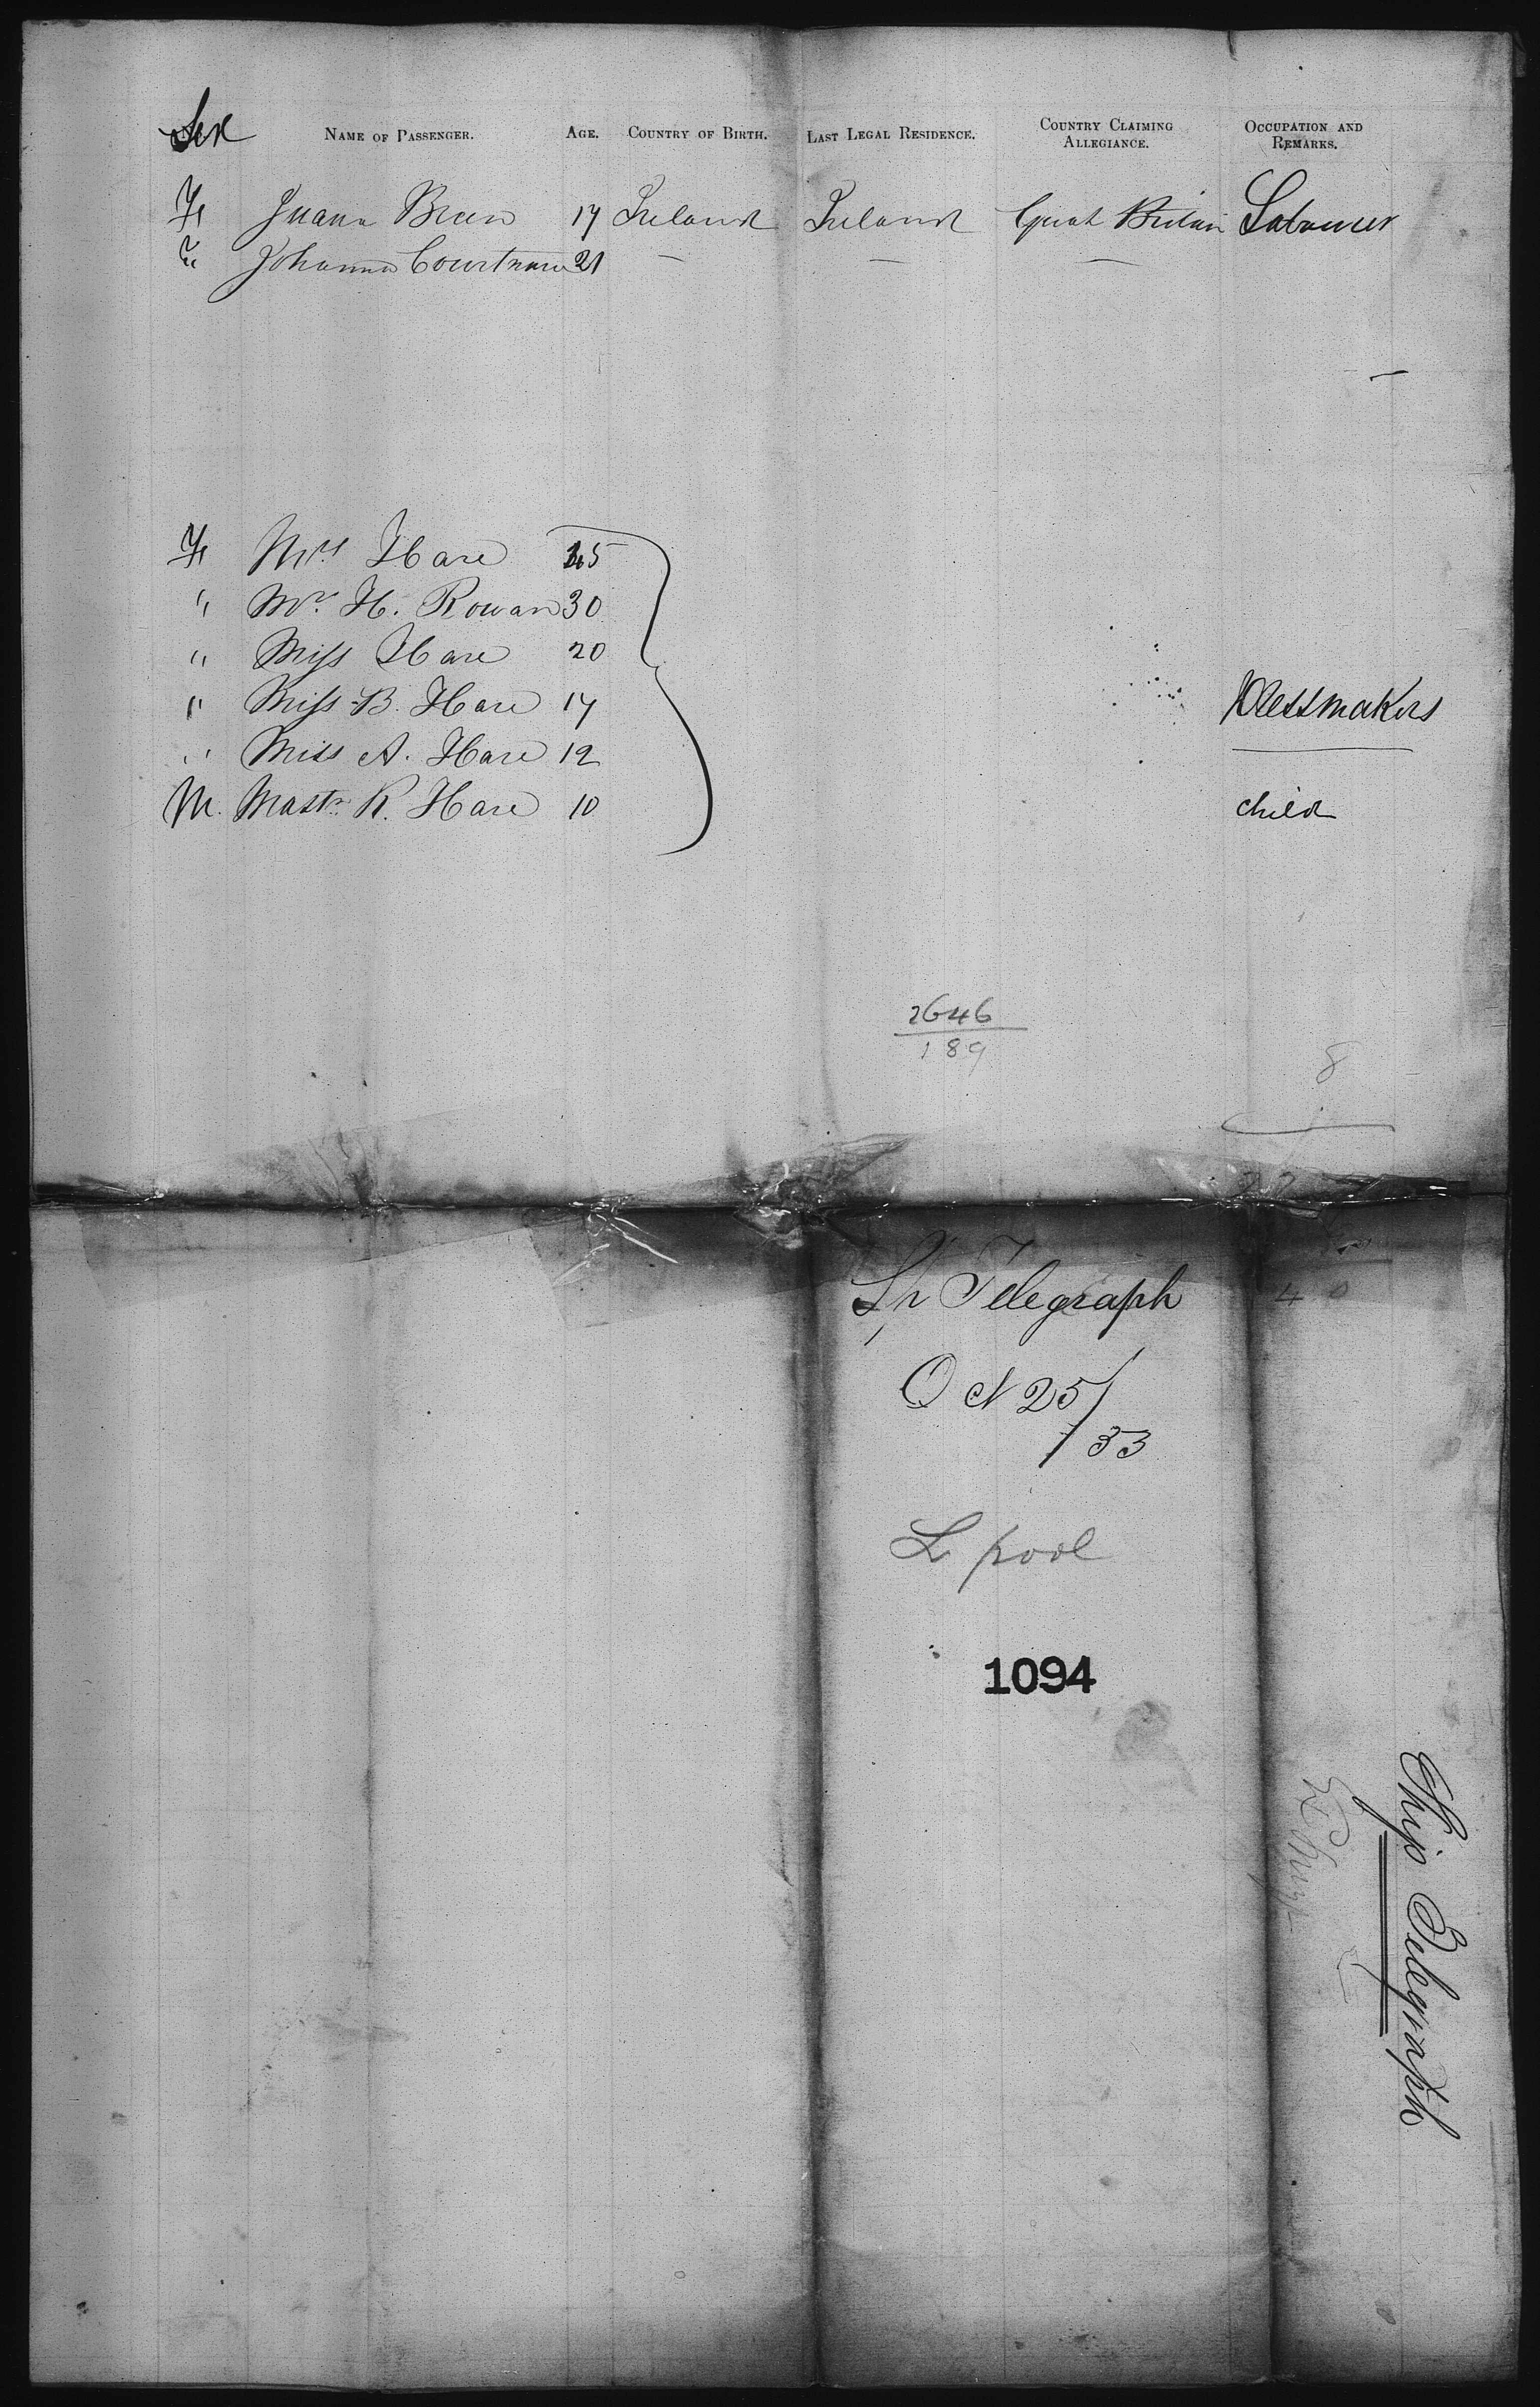 Sex NAME OF PASSENGER. AGE. COUNTRY OF BIRTH. LAST LEGAL RESIDENCE. COUNTRY CLAIMING ALLEGIANCE. OCCUPATION AND REMARKS.
Fe Breen 17 Ireland Ireland Great Britain Labourer
Fe Johanna 21 — — —
Fe Mrs Hare 45
" Mr. H. Rowan 30
" Miss Hare 20
" Miss B. Hare 17 Dressmakers
" Miss A. Hare 12
M. Mastr R. Hare 10 child
2646
189
8
27
40
Sp Telegraph
O N 25/
33
L pool
1094
Ship Telegraph